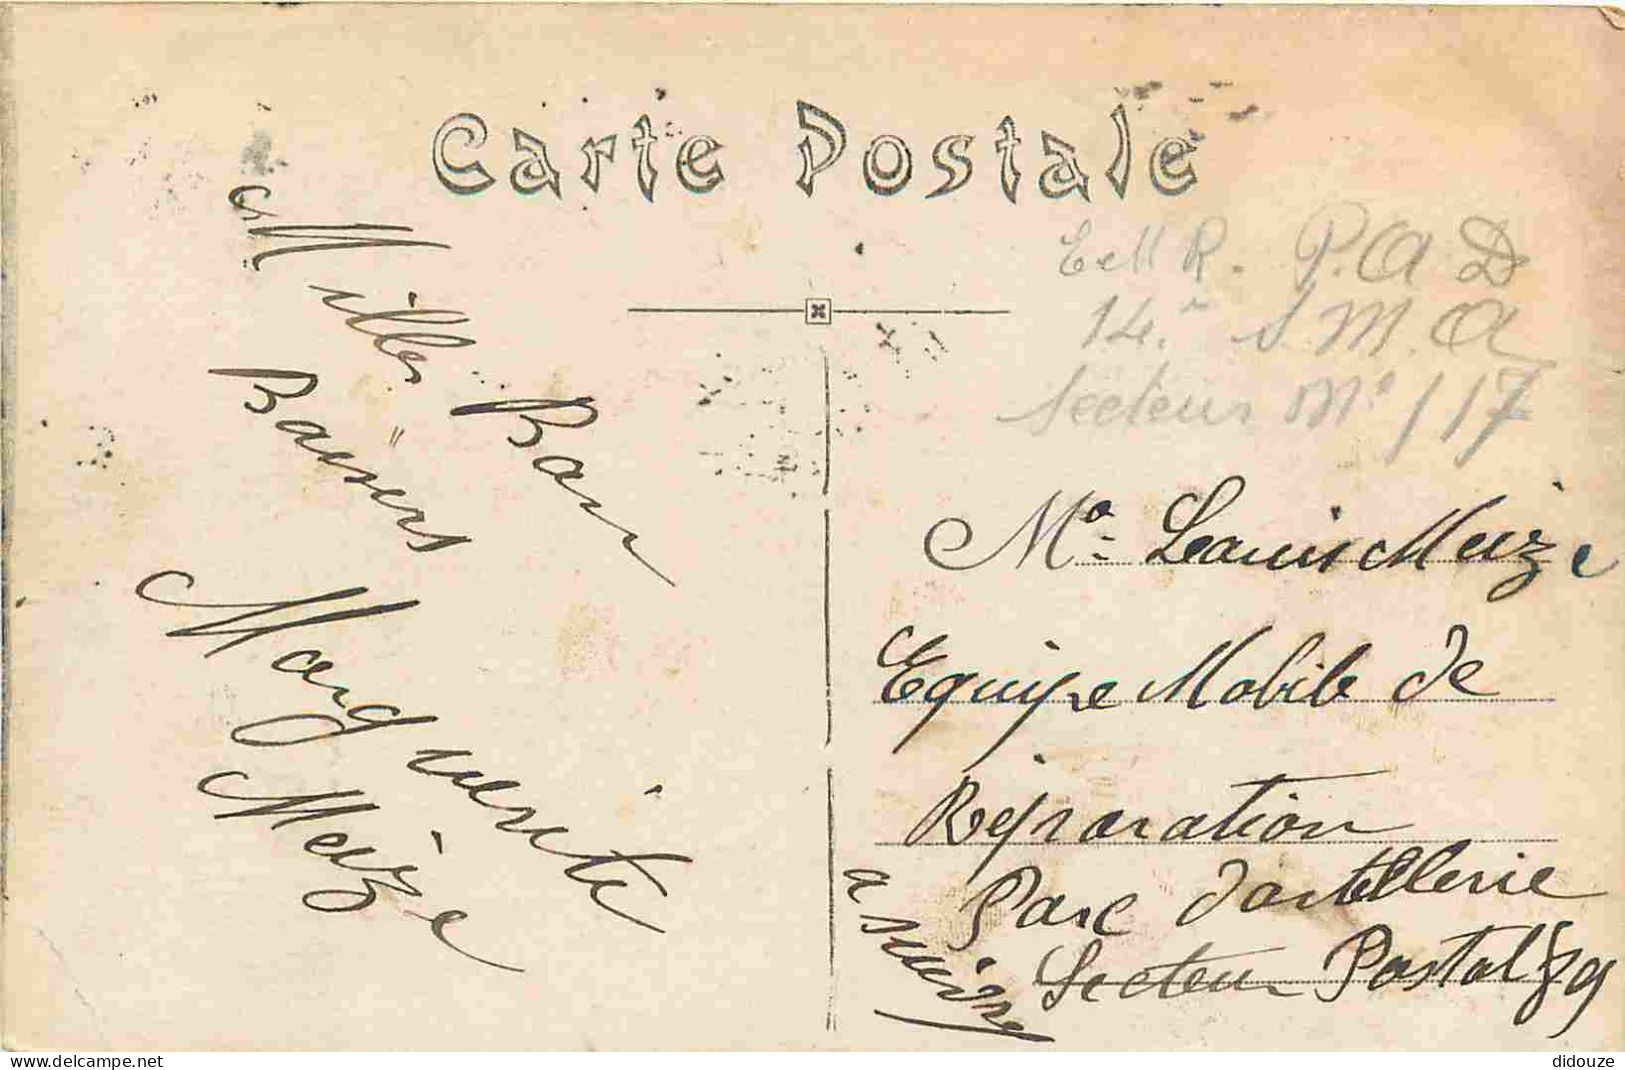 Carte Postale
Mille Bon
Baisers
Marguerite
Meize
P.A.D
14.e S.M.A
Secteur No 117
Mr Louis Meize
Equipe Mobile de
Réparation
Parc dartillerie
Secteur Postal 89
a suivre
www.delcampe.net
didouze